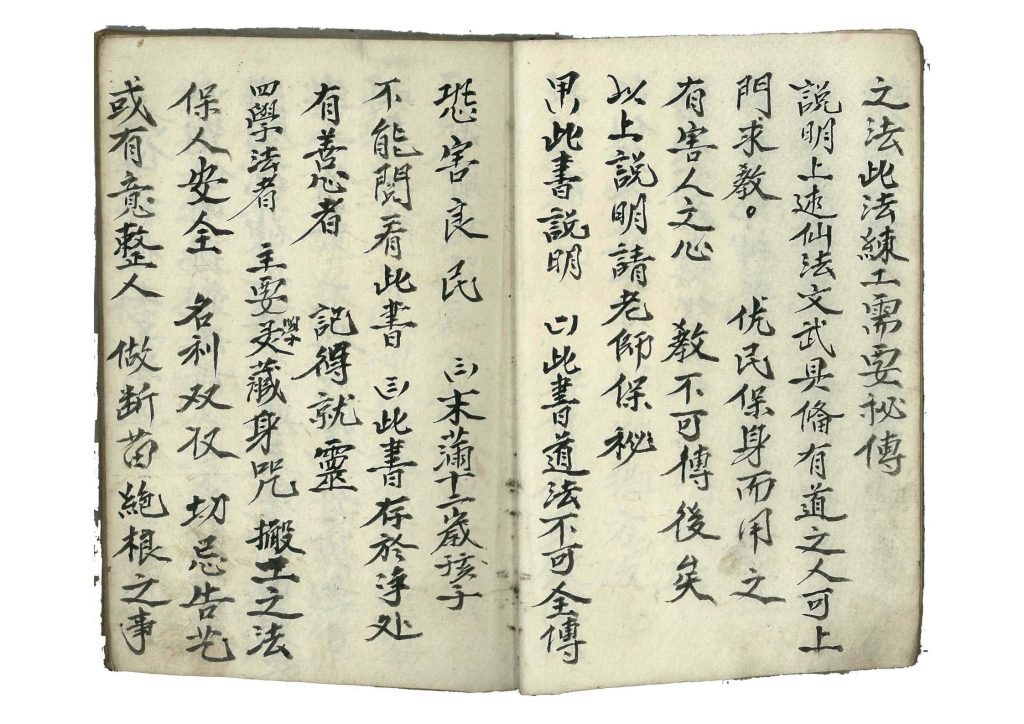 之法此法練工需要祕傳
說明上述仙法文武具備有道之人可上
門求教。 优民保身而用之
有害人之心 教不可傳後矣
以上說明請老師保祕
用此書說明 (一)此書道法不可全傳
恐害良民 (二)末滿十二歲孩子
不能閱看此書 (三)此書存於净处
有善心者 記得就靈
四學法者 主要學藏身咒 搬工之法
保人安全 名利双收 切忌告
或有意整人 做断苗絕根之事